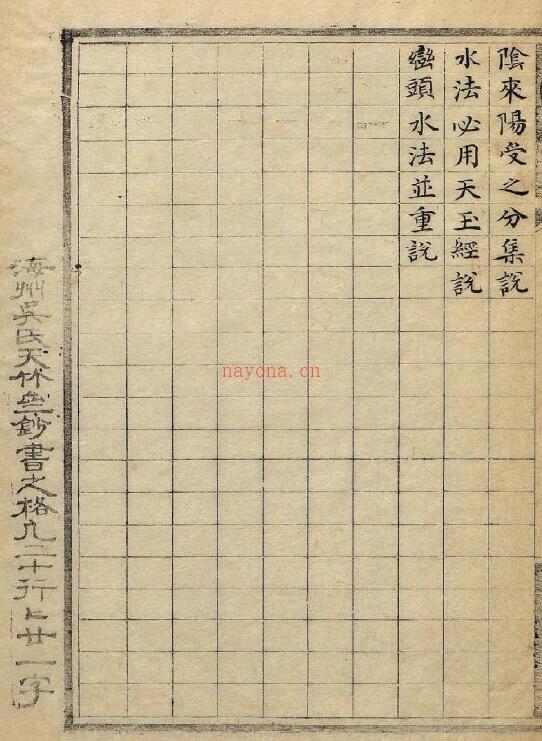 陰來陽受之分集說
水法必用天玉經說
巒頭水法並重說
海州吳氏天竹盦鈔書之格凡二十行行廿一字
nayona.cn